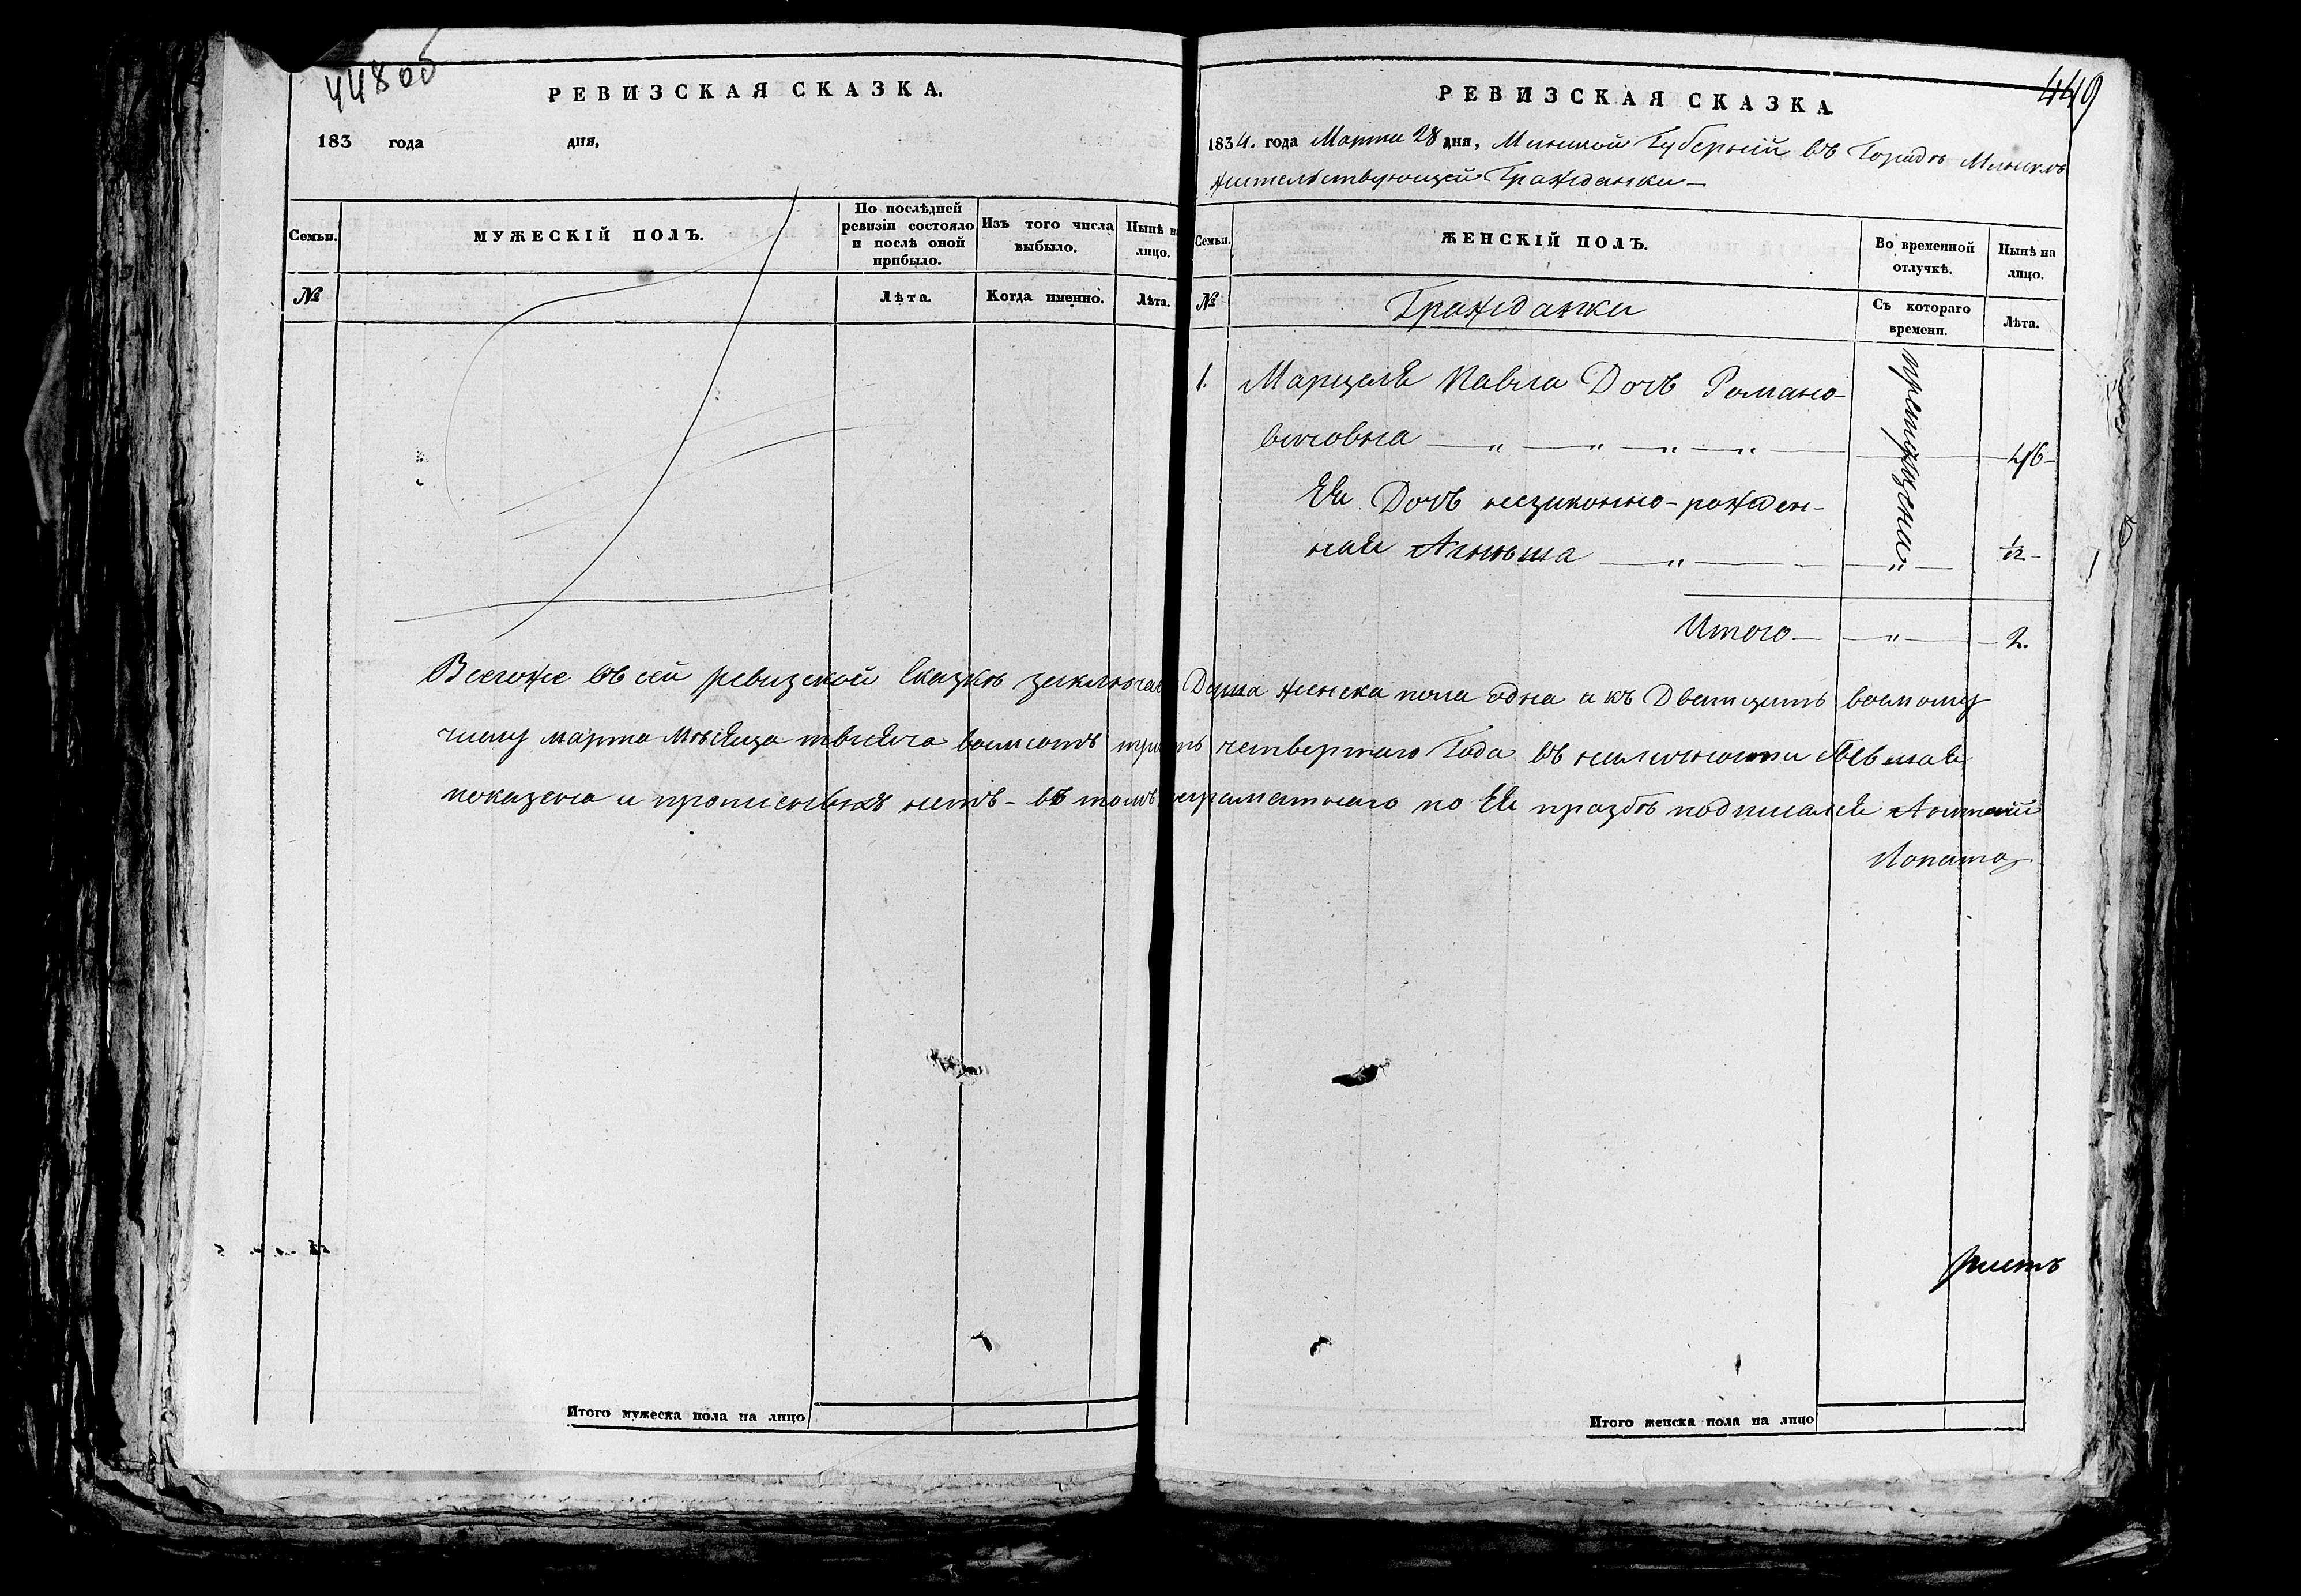 448об
РЕВИЗСКАЯ СКАЗКА.
183 года дня,
Семьи.
МУЖЕСКІЙ ПОЛЪ.
По послѣдней ревизіи состояло и послѣ оной прибыло.
Изъ того числа выбыло.
Нынѣ н лицо.
№
Лѣта.
Когда именно.
Лѣта.
449
РЕВИЗСКАЯ СКАЗКА
1834. года Марта 28 дня, Минской Губерніи въ Городѣ Минскѣ
жительствующей Гражданки
Семьи.
ЖЕНСКІЙ ПОЛЪ.
Во временной отлучкѣ.
Нынѣ на лицо.
№
Гражданки
Съ котораго времени.
Лѣта.
1. Марцеля Павла Дочъ Романо-
вичовна — " — " — " — " — 46
Ея Дочъ незаконно-рожден-
ная Агнѣша — " — " — 1/12
Итого — " — 2.
Всегоже въ сей ревизской Сказкѣ заключае Душа женска пола одна а къ Дватцать восмому
числу марта Мѣсяца тысяча восмсотъ трить четвертаго Года въ наличности
показена и прописныхъ нетъ - въ томъ неграматнаго по Ея прозбѣ подписался Антоній
Лопато
Итого мужеска пола на лицо
Итого женска пола на лицо